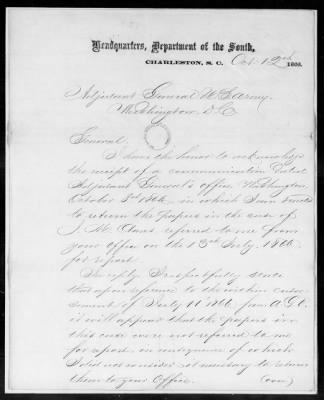 Headquarters, Department of the South,
CHARLESTON, S. C. Oct. 12th 1866.
Adjutant General U.S. Army.
Washington D.C.
General.
I have the honor to acknowledge
the receipt of a communication dated
Adjutant General's office, Washington
October 3rd 1866, in which I am
to return the papers in the case of
J. M. referred to me from
your office on the 13th July, 1866
for report.
In reply I respectfully state
that upon reference to the
of July 11th 1866 from A.G.O.
it will appear that the papers in
this case were not referred to me
for report, in consequence of which
I did not consider it necessary to return
them to your Office.
(over)